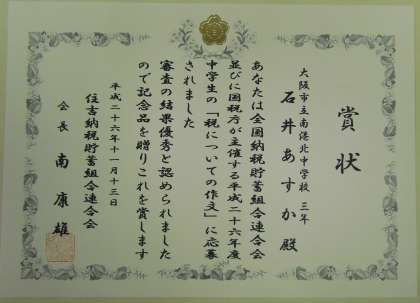 賞状
大阪市立南港北中学校 三年
石井あすか殿
あなたは全国納税貯蓄組合連合会
並びに国税庁が主催する平成二十六年度
中学生の「税についての作文」に応募
されました
審査の結果優秀と認められました
ので記念品を贈りこれを賞します
平成二十六年十一月十三日
住吉納税貯蓄組合連合会
会長 南康雄